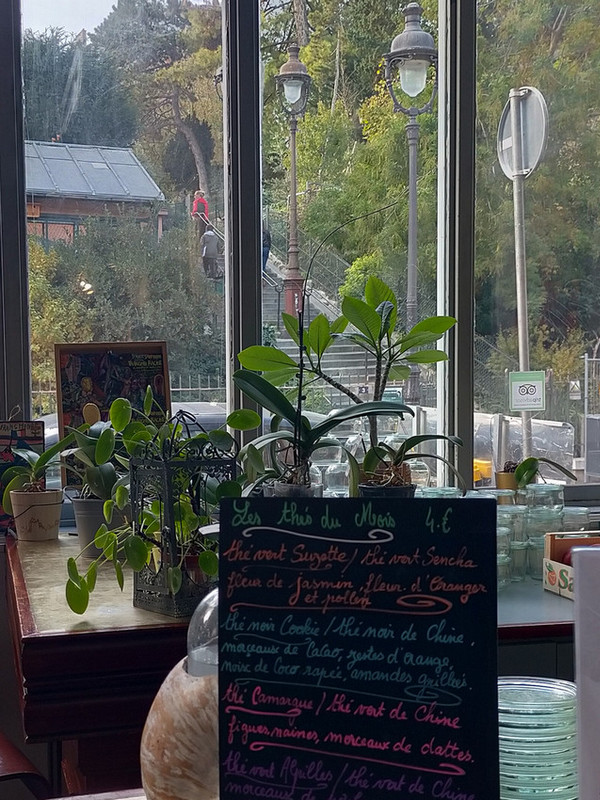 Les thés du Mois 4.€
thé vert Suzette / thé vert Sencha
fleur de Jasmin, fleur d'Oranger
et pollen
thé noir Cookie / thé noir de Chine,
morceaux de Cacao, zestes d'orange,
noix de Coco rapée, amandes grillées.
thé Camargue / thé vert de Chine
figues naines, morceaux de dattes.
thé vert Aiguilles / thé vert de Chine
morceaux de